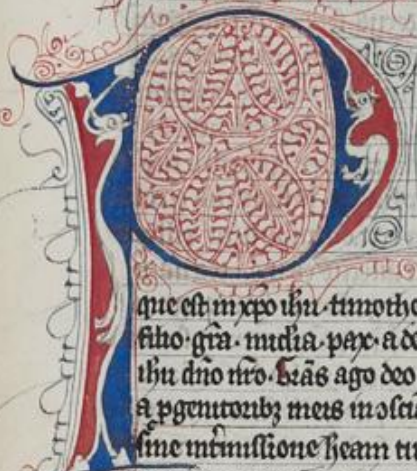 P
que est in xpo ihu· timothe
filio· gra· mīdia· pax· a de
ihu dno nro. Gras ago deo
a pgenitoribz meis in ɔsci
sine intmissione heam tu